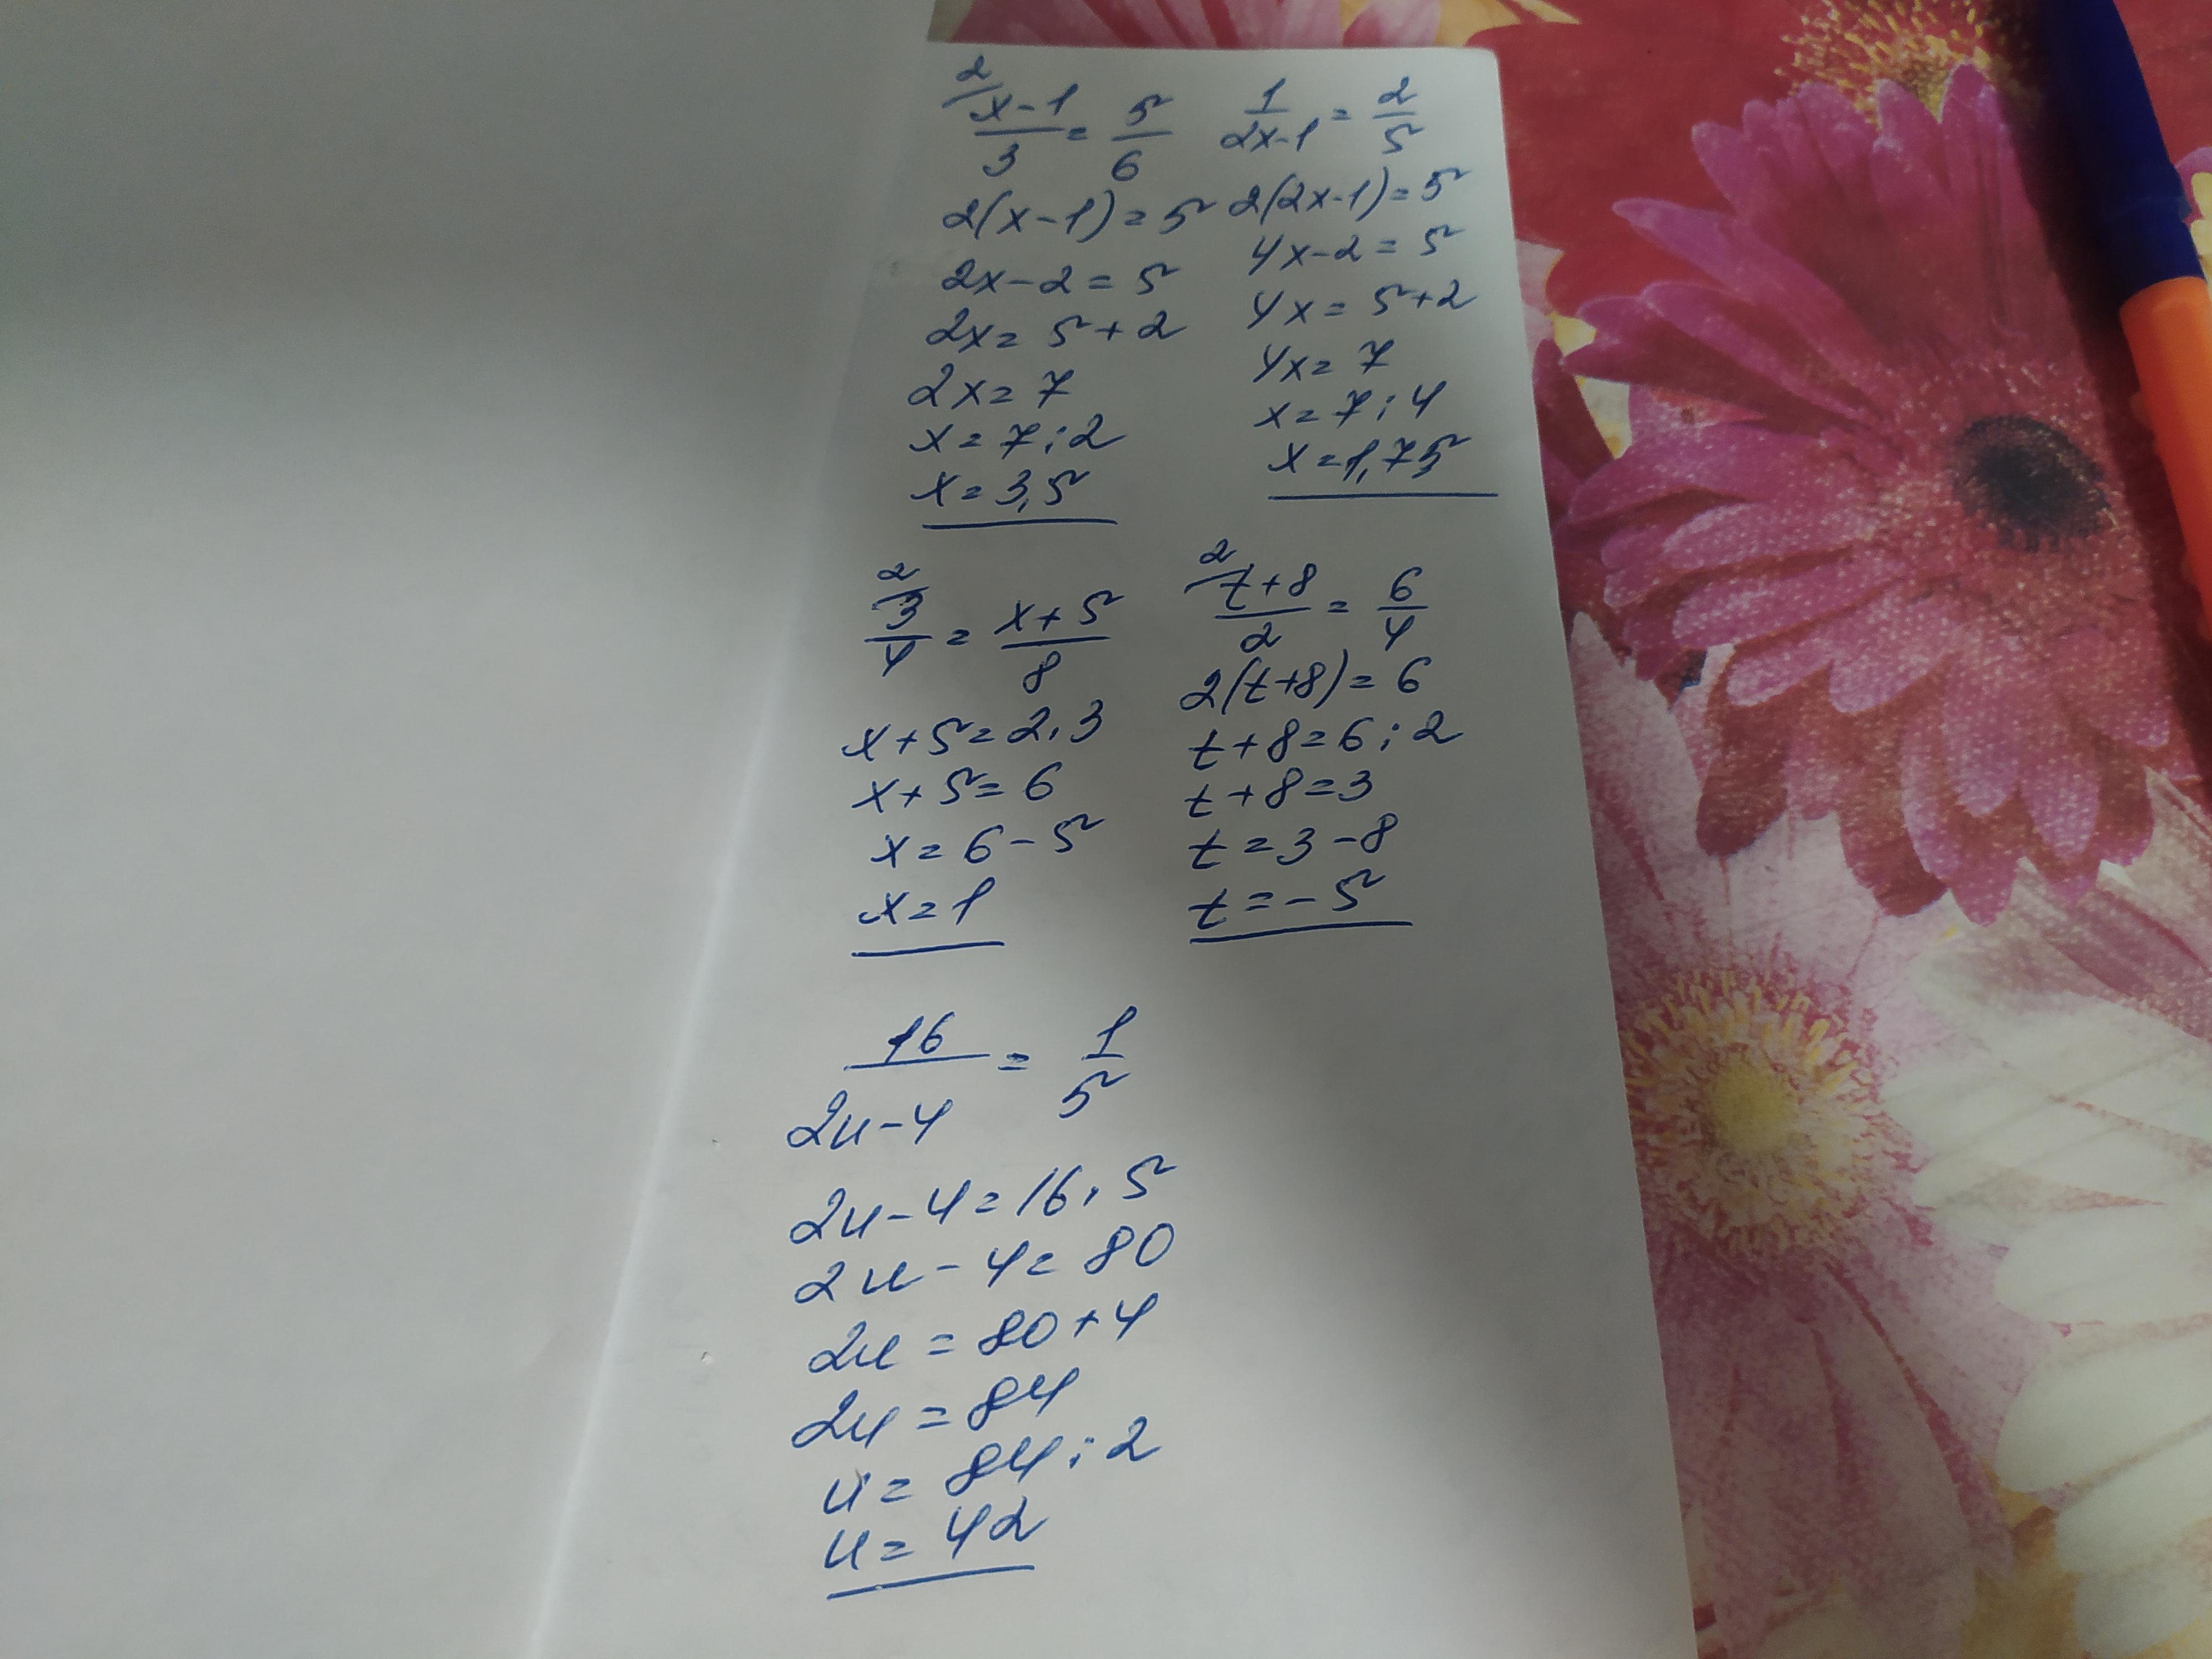 2
x-1/3 = 5/6
2(x-1)=5
2x-2=5
2x=5+2
2x=7
x=7:2
x=3,5
1/2x-1 = 2/5
2(2x-1)=5
4x-2=5
4x=5+2
4x=7
x=7:4
x=1,75
2
3/4 = x+5/8
x+5=2·3
x+5=6
x=6-5
x=1
2
t+8/2 = 6/4
2(t+8)=6
t+8=6:2
t+8=3
t=3-8
t=-5
16/2u-4 = 1/5
2u-4=16·5
2u-4=80
2u=80+4
2u=84
u=84:2
u=42